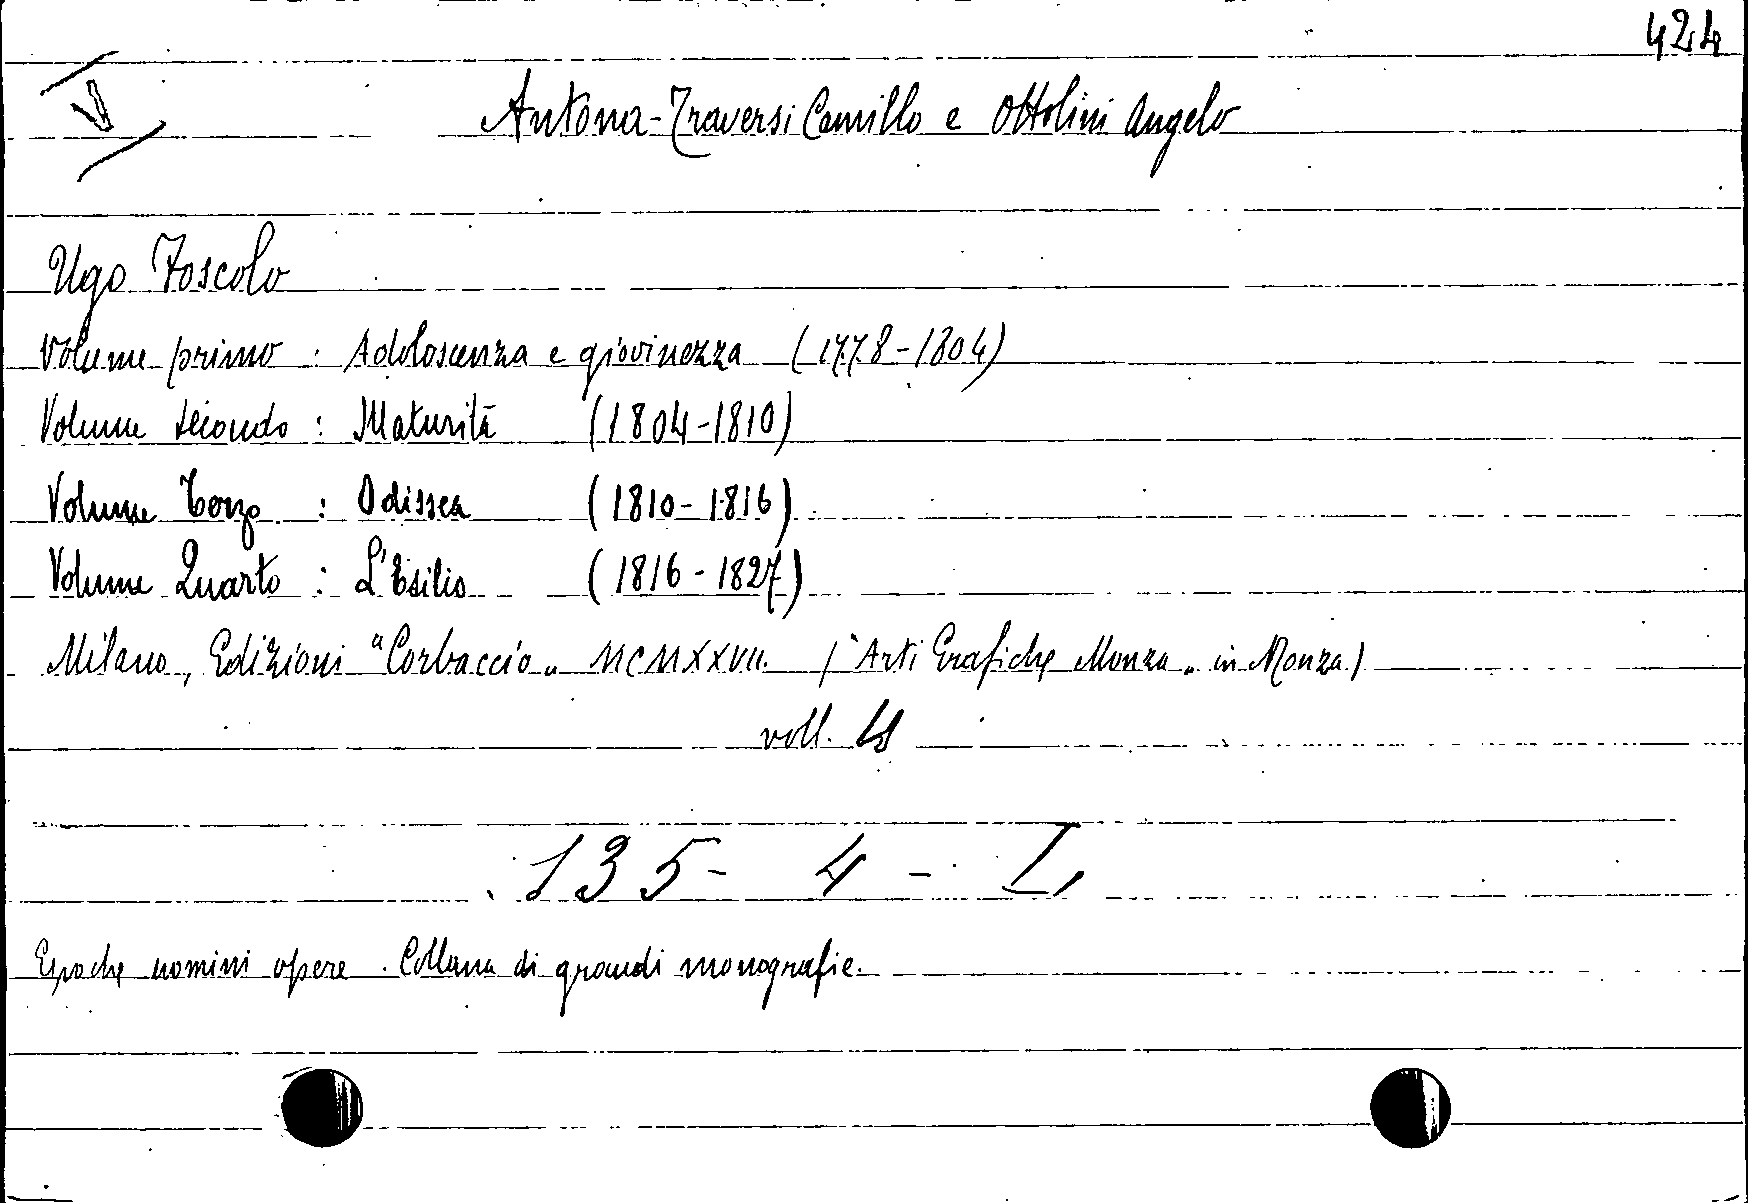 424
V
Antona-Traversi Camillo e Ottolini Angelo
Ugo Foscolo
Volume primo : Adoloscenza e giovinezza (1778-1804)
Volume secondo : Maturità (1804-1810)
Volume terzo : Odissea (1810-1816)
Volume Quarto : L'Esilio (1816-1827)
Milano, Edizioni "Corbaccio" MCMXXVII. ("Arti Grafiche Monza" in Monza)
voll. 4
135- 4 - I,
Epoche uomini opere. Collana di grandi monografie.